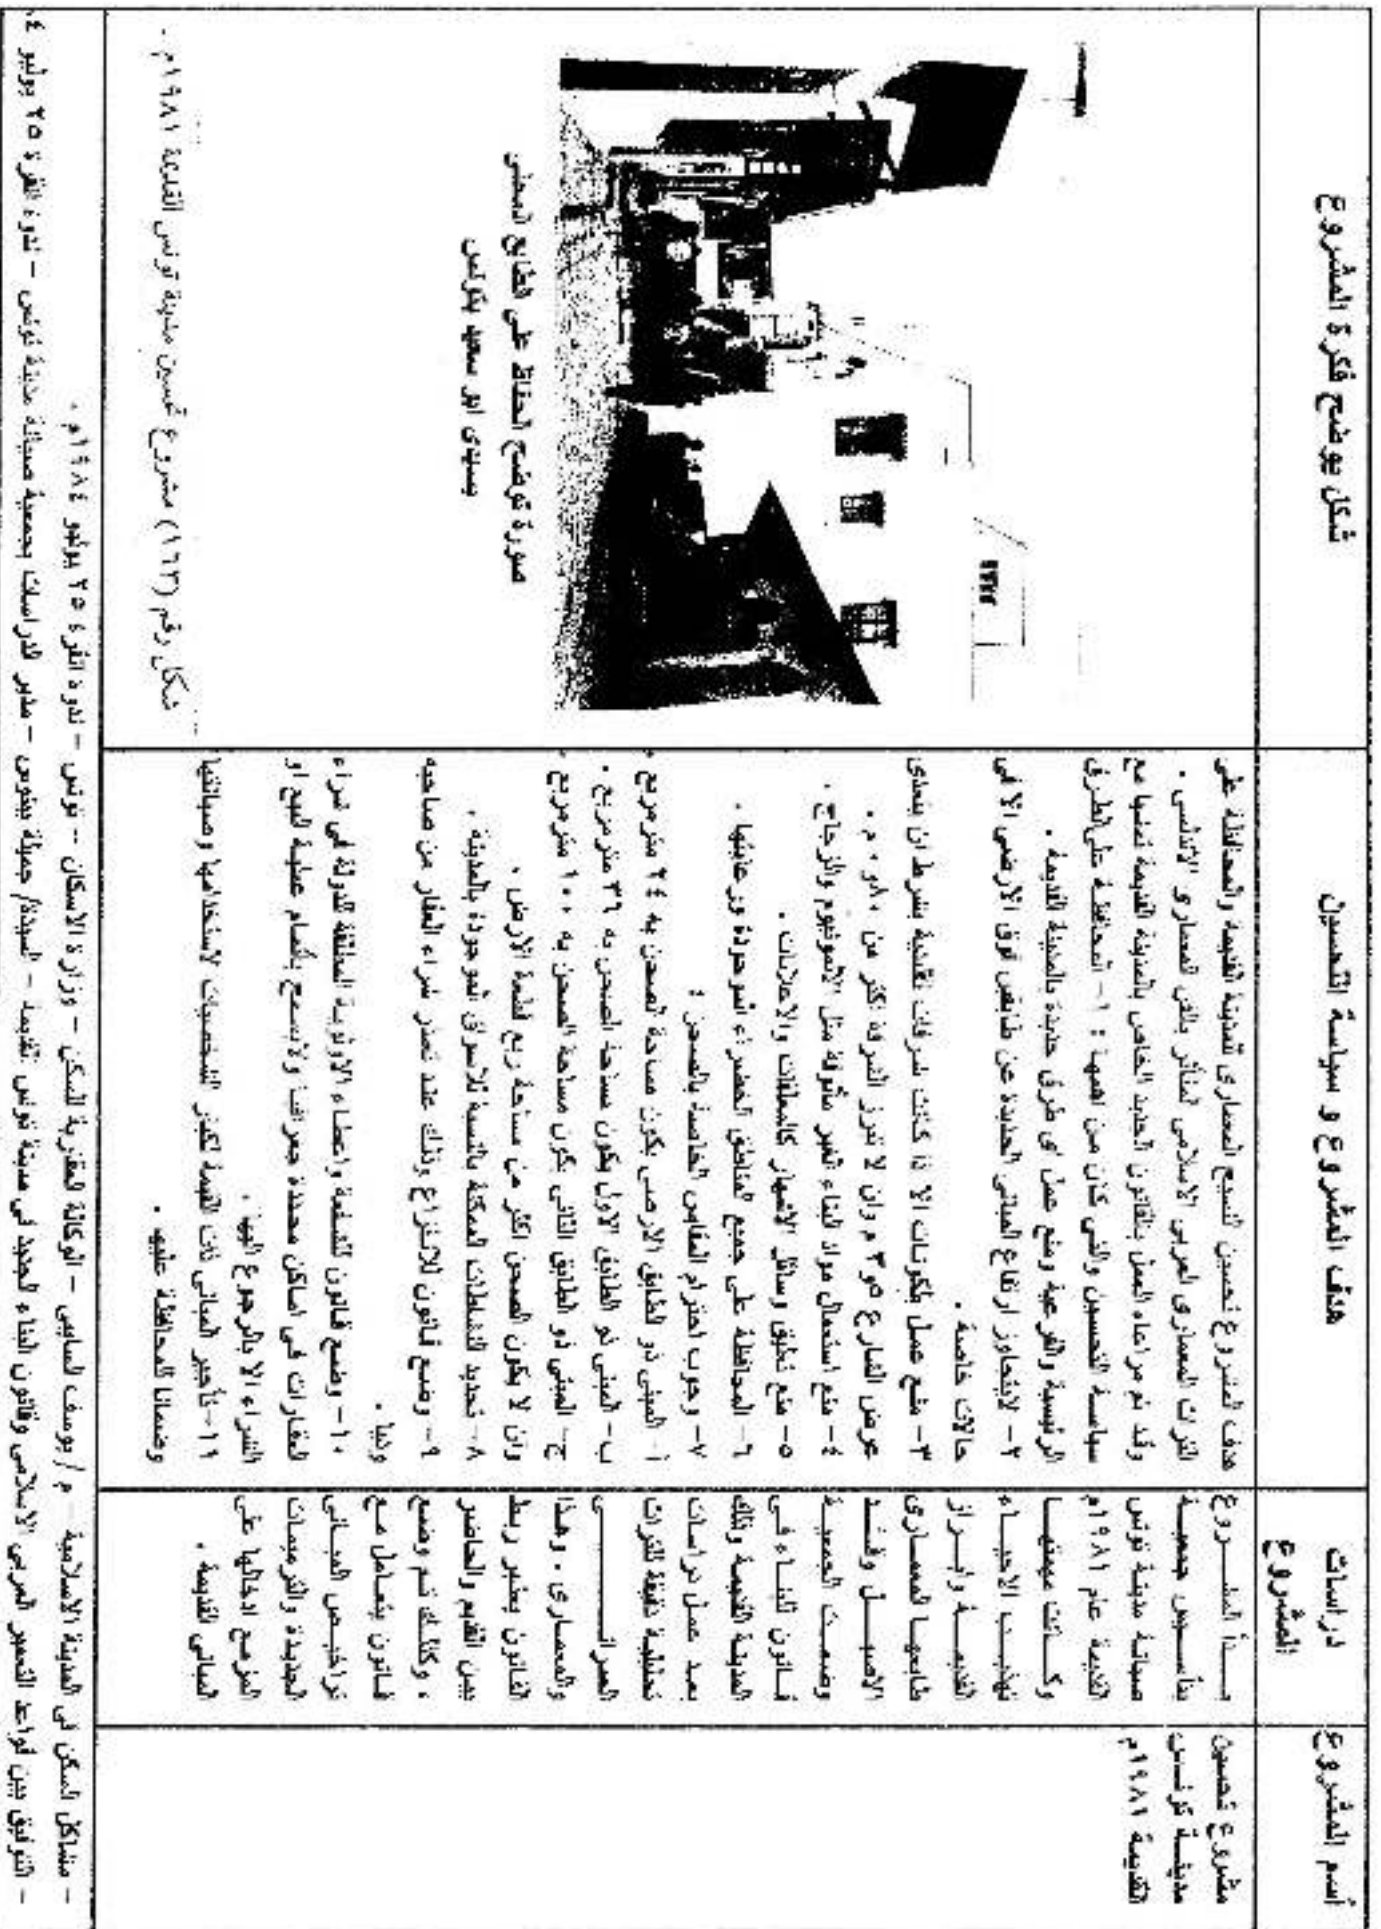 أسم المشروع
دراسات
المشروع
هدف المشروع و سياسة التحسين
شكل يوضح فكرة المشروع
مشروع تحسين
مدينة تونس
القديمة ١٩٨١م
بدأ المشروع
بتأسيس جمعية
صيانة مدينة تونس
القديمة عام ١٩٨١م
وكانت مهمتها
تهذيب الاحياء
القديمة وابراز
طابعها المعمارى
الاصيل وقد
وضعت الجمعية
قانون للبناء فى
المدينة القديمة وذلك
بعد عمل دراسات
تحليلية دقيقة للتراث
العمرانى
والمعمارى . وهذا
القانون يعتبر ربط
بين القديم والحاضر
، وكذلك تم وضع
قانون يتعامل مع
تراخيص المبانى
الجديدة والترميمات
المزمع ادخالها على
المبانى القديمة .
هدف المشروع تحسين النسيج المعمارى للمدينة القديمة والمحافظة على
التراث المعمارى العربى الاسلامى المتأثر بالفن المعمارى الاندلسى .
وقد تم مراعاه العمل بالقانون الجديد الخاص بالمدينة القديمة تمشيا مع
سياسة التحسين والتى كان من اهمها : ١- المحافظة على الطرق
الرئيسية والفرعية ومنع عمل اى طرق جديدة بالمدينة القديمة .
٢- لايتجاوز ارتفاع المبانى الجديدة عن طابقين فوق الارضى الا فى
حالات خاصة .
٣- منع عمل بلكونات الا اذا كانت شرفات تقليدية بشرط ان يتعدى
عرض الشارع ٣٫٥ م وان لا تبرز الشرفة اكثر من ٠٫٨٠ م .
٤- منع استعمال مواد البناء الغير مألوفة مثل الالمونيوم والزجاج .
٥- منع تعليق وسائل الاشهار كالمعلقات والاعلانات .
٦- المحافظة على جميع المناطق الخضراء الموجودة ورعايتها .
٧- وجوب احترام المقاييس الخاصة بالصحن :
أ- المبنى ذو الطابق الارضى يكون مساحة الصحن به ٢٤ متر مربع .
ب- المبنى ذو الطابق الاول يكون مساحة الصحن به ٣٦ متر مربع .
ج- المبنى ذو الطابق الثانى يكون مساحة الصحن به ١٠٠ متر مربع .
وان لا يكون الصحن اكثر من مساحة ربع قطعة الارض .
٨- تحديد النشاطات الممكنة بالنسبة للاسواق الموجودة بالمدينة .
٩- وضع قانون للانتزاع وذلك عند تعذر شراء العقار من صاحبه
وديا .
١٠- وضع قانون للشفعة واعطاء الاولوية المطلقة للدولة فى شراء
العقارات فى اماكن محددة جغرافيا ولا يسمح بإتمام عملية البيع او
الشراء الا بالرجوع اليها .
١١- تأجير المبانى ذات القيمة لكبار الشخصيات لاستخدامها وصيانتها
وضمانا للمحافظة عليها .
صورة توضح الحفاظ على الطابع المحلى
بسيدى ابو سعيد بتونس
شكل رقم (١٦٣) مشروع تحسين مدينة تونس القديمة ١٩٨١م .
- مشاكل السكن فى المدينة الاسلامية - م / يوسف - الوكالة العقارية للسكن - وزارة الاسكان - تونس - ندوة انقرة ٢٥ يوليو ١٩٨٤م .
- التوفيق بين قواعد التعمير العربى الاسلامى وقانون البناء الجديد فى مدينة تونس القديمة - السيدة/ جميلة بينوس - مدير الدراسات بجمعية صيانة مدينة تونس - ندوة انقرة ٢٥ يوليو